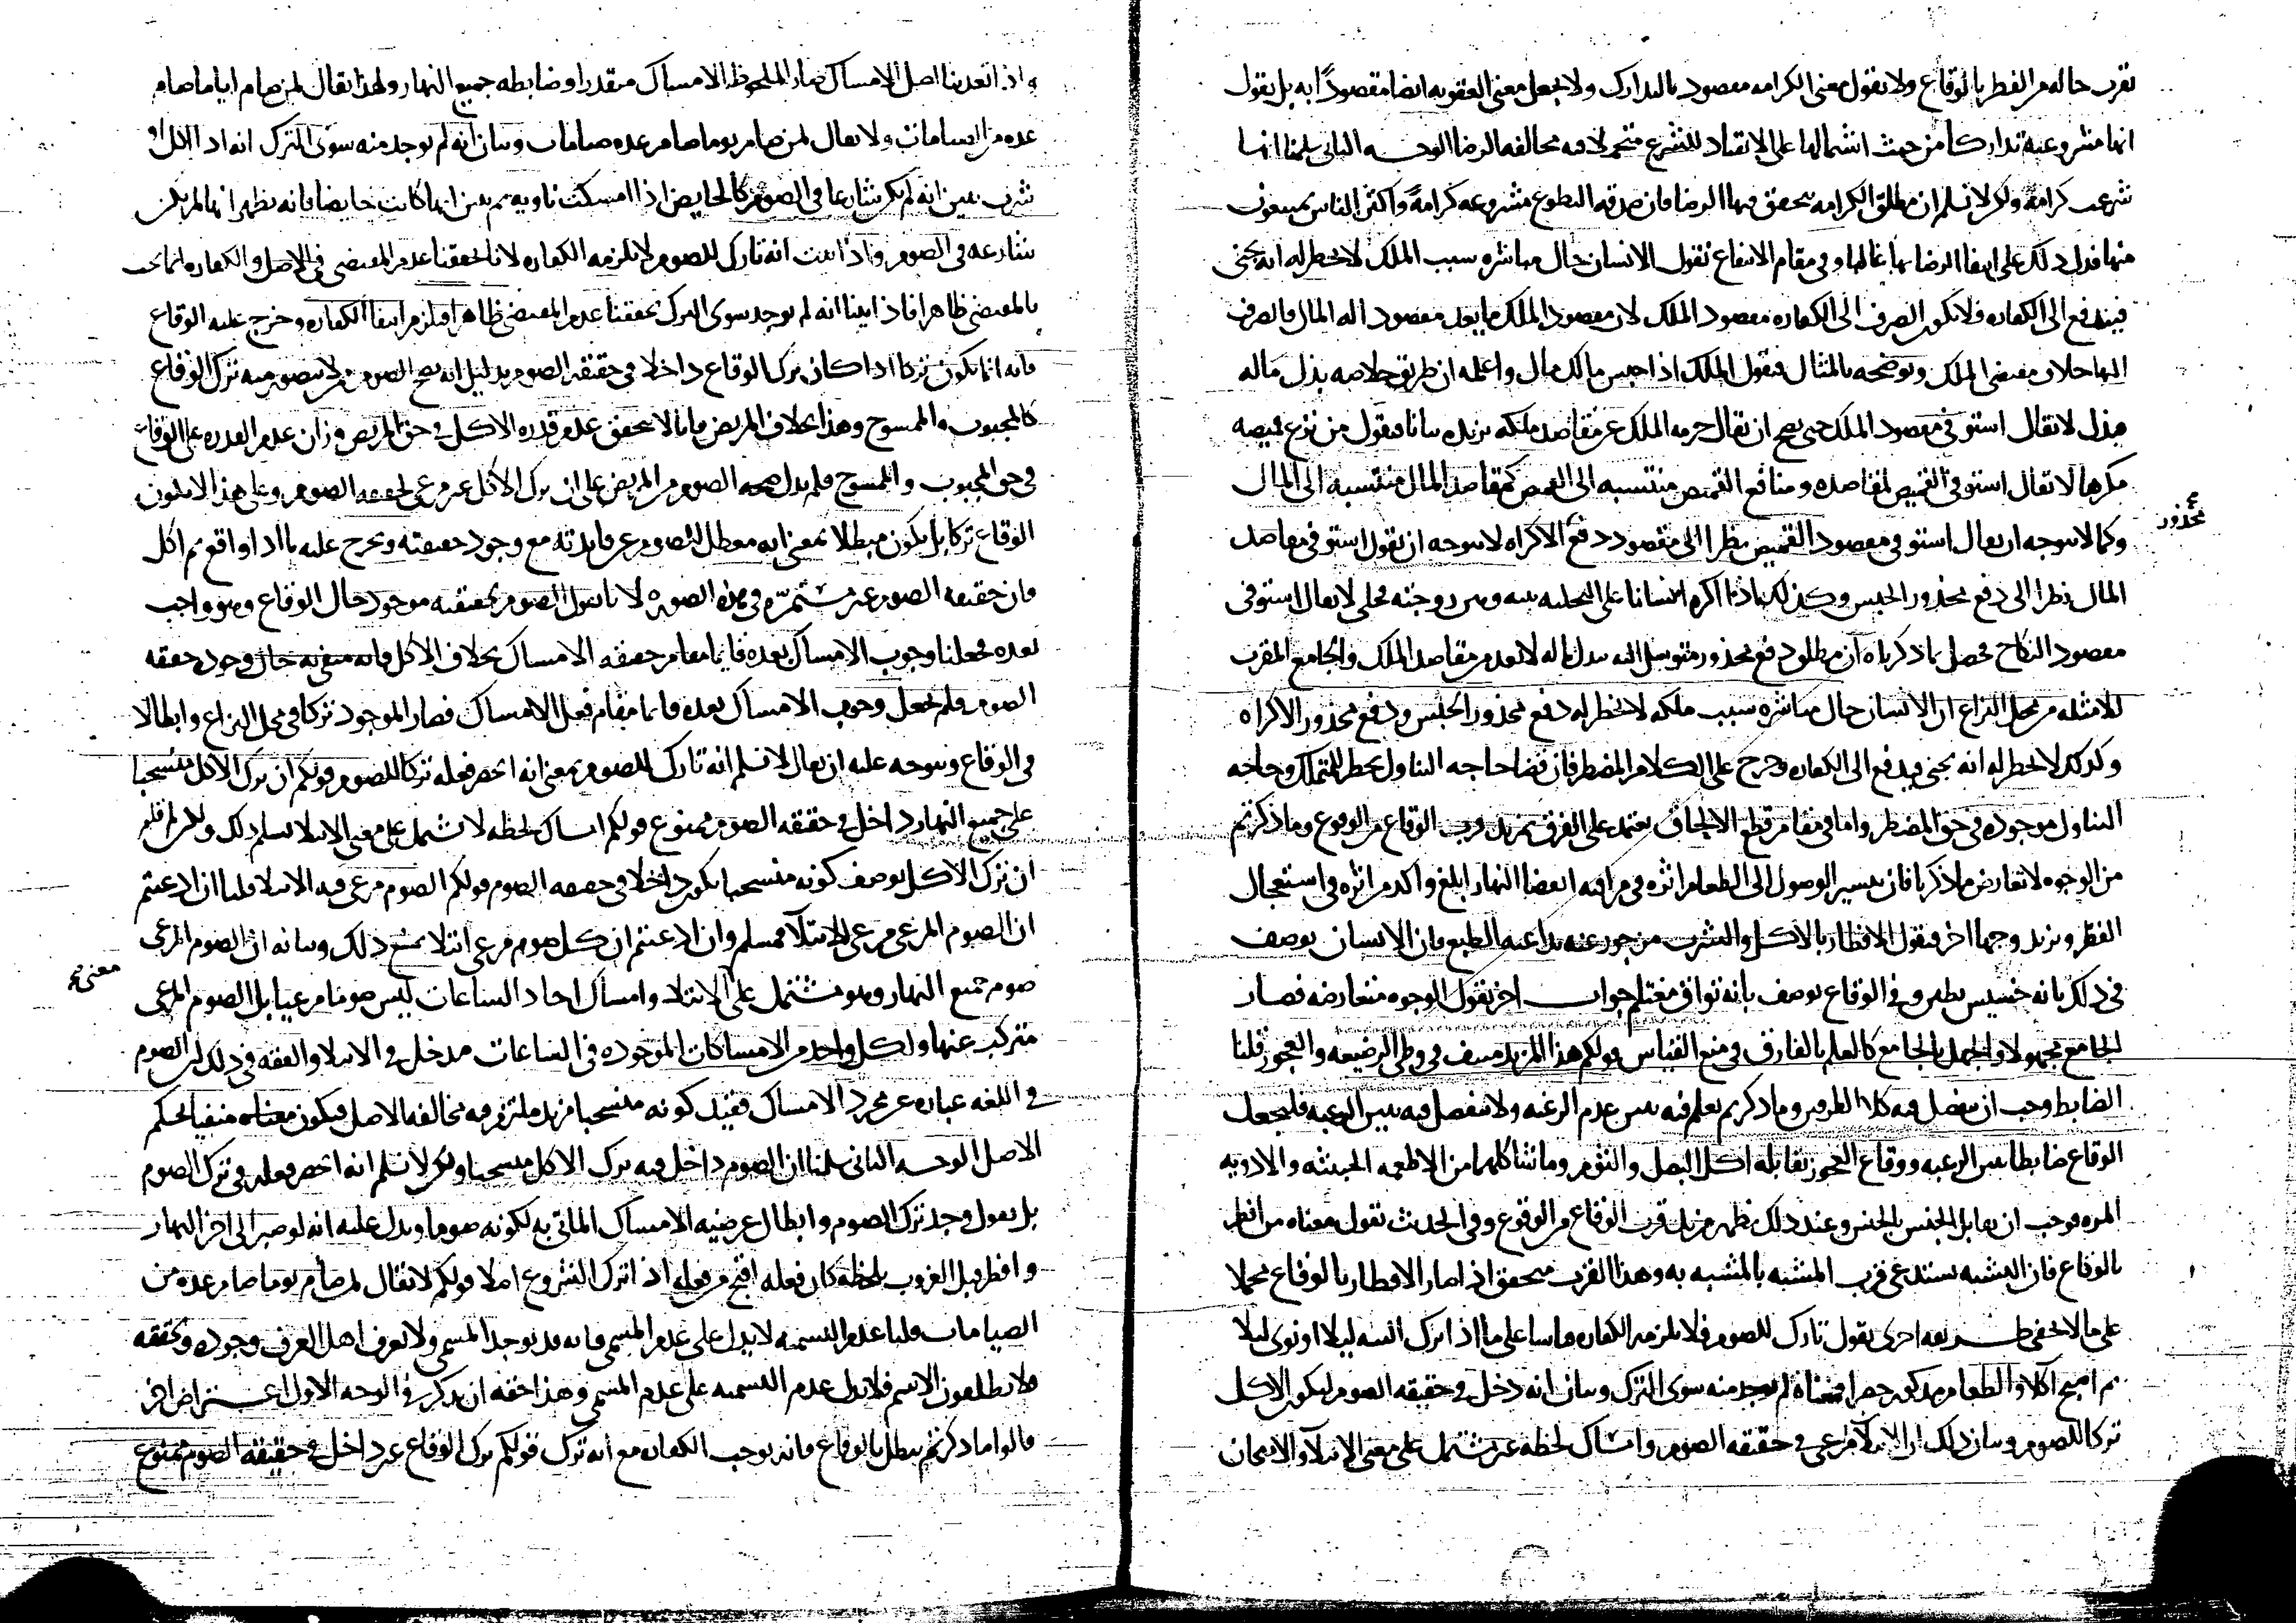 تقرب حاله من الفطر بالوقاع ولا نقول معنى الكرامه مقصود بالتدارك ولا يجعل معنى العقوبه ايضا مقصودًا به بل نقول
انها مشروعية تداركا من حيث اشتمالها على الانقياد للشرع متحملا فيه مخالفه الرضا الوجه الثاني سلمنا انها
شرعت كرامة ولكن لا نسلم ان مطلق الكرامه يتحقق فيها الرضا فان صدقه التطوع مشروعه كرامةً واكثر الناس يمتنعون
منها فدل ذلك على انتفا الرضا بها غالبا وفي مقام الانتفاع نقول الانسان حال مباشره سبب الملك لا يخطر له انه يجني
فيندفع الى الكفاره فلا يكون الصرف الى الكفاره مقصود الملك لان مقصود الملك ما يعد مقصود اله المال فالصرف
الها خلاف مقتضى الملك ونوضحه بالمثال فنقول الملك اذا حبس مالك مال واعلمه ان طريق خلاصه بذل ماله
فبذل لا يقال استوفى مقصود الملك حتى يصح ان يقال حرمه الملك عن مقاصد ملكه نزيده بيانا فنقول من نزع قميصه
مكرها لا يقال استوفى القميص لمقاصده ومنافع القميص منتسبه الى القميص كمقاصد المال منتسبه الى المال
وكما لا يتوجه ان يقال استوفى مقصود القميص نظرا الى مقصود دفع الاكراه لا يتوجه ان يقول استوفى مقاصد
محذور
المال نظرا الى دفع محذور الحبس وكذلك اذا اكره انسانا على التخليه بينه وبين زوجته فخلى لا يقال استوفى
مقصود النكاح فحصل بما ذكرناه ان مطلوب دفع محذور متوسل اليه ببدل ماله لا يعد من مقاصد الملك والجامع المقرب
للامثله من محل النزاع ان الانسان حال مباشره سبب ملكه لا يخطر له دفع محذور الحبس ودفع محذور الاكراه
وكذلك لا يخطر له انه يجني فيدفع الى الكفاره وخرج على الكلام المضطر فان قضا حاجه التناول يخطر للمتملك وحاجه
التناول موجوده في حق المضطر واما في مقام قطع الالحاق نعتمد على الفرق بمزيد قرب الوقاع من الوقوع وما ذكرتم
من الوجوه لا تعارض ما ذكرنا فان تيسير الوصول الى الطعام اثره في مراقبه انقضا النهار ابلغ واكد من اثره في استعجال
الفطر ونزيد وجها اخر فنقول الافطار بالاكل والشرب مزجور عنه بداعيه الطبع فان الانسان يوصف
في ذلك بانه خسيس بطر وفي الوقاع يوصف بانه تواق مغتلم جواب اخر نقول الوجوه متعارضه فصار
الجامع مجهولا والجهل بالجامع كالعلم بالفارق في منع القياس قولكم هذا المزيد منتف في وطي الرضيعه والعجوز قلنا
الضابط وجب ان ينفصل فيه كلا الطرفين وما ذكرتم نعلم فيه تيسر عدم الرغبه ولا ينفصل فيه تيسر الرغبه فليجعل
الوقاع ضابطا لتيسر الرغبه ووقاع العجوز يقابله اكل البصل والثوم وما شاكلهما من الاطعمه الخبيثه والادويه
المره فوجب ان يقابل الجنس بالجنس وعند ذلك يظهر مزيد قرب الوقاع من الوقوع وفي الحديث نقول معناه من افطر
بالوقاع فان التشبيه يستدعي قرب المشبه بالمشبه به وهذا القرب متحقق اذا صار الافطار بالوقاع محملا
على ما لا يخفى طريقه اخرى نقول تارك للصوم فلا يلزمه الكفاره قياسا على ما اذا ترك النيه ليلا او نوى ليلا
ثم اصبح اكلا والطعام لم يوجد منه سوى الترك وبيان انه دخل في حقيقه الصوم ليكون الاكل
تركا للصوم وبيان ذلك ان الابتلآ مرعي في حقيقه الصوم وامساك لحظه غير مشتمل على معنى الابتلآ والامتحان
واذا تعدينا اصل الامساك صار الملحوظ الامساك مقدرا وضابطه جميع النهار ولهذا يقال لمن صام اياما صام
عده من الصيامات ولا يقال لمن صام يوما صام عده صيامات وبيان انه لم يوجد منه سوى الترك انه اذا اكل او
شرب تبين انه لم يكن شارعا في الصوم كالحايض اذا امسكت ناويه ثم تبين انها كانت حايضا فانه يظهر انها لم تكن
شارعه في الصوم واذا ثبت انه تارك للصوم لا تلزمه الكفاره لانا تحققنا عدم المقتضي في الاصل والكفاره انما تجب
بالمقتضي ظاهرا فاذا ابنا انه لم يوجد سوى الترك تحققنا عدم المقتضي ظاهرا فيلزم انتفا الكفاره وخرج عليه الوقاع
فانه انما يكون تركا اذا كان ترك الوقاع داخلا في حقيقه الصوم بدليل انه يصح الصوم ممن لا يتصور منه ترك الوقاع
كالمجبوب والممسوح وهذا بخلاف المريض فانا لا نتحقق عدم قدره الاكل في حق المريض وزان عدم القدره على الوقاع
في حق المجبوب والممسوح فلم يدل صحه الصوم من المريض على ان ترك الاكل غير مرعي لحقيقه الصوم وعلى هذا لا يكون
الوقاع تركا بل يكون مبطلا بمعنى انه معطل للصوم عن فايدته مع وجود حقيقته ويخرج عليه ما اذا واقع ثم اكل
فان حقيقه الصوم غير مستمره في هذه الصوره لانا نقول الصوم بحقيقته موجود حال الوقاع وهو واجب
بعده فجعلنا وجوب الامساك بعده قايما مقام حقيقه الامساك بخلاف الاكل فانه منتفي به حال وجود حقيقه
الصوم فلم نجعل وجوب الامساك بعده قايما مقام فعل الامساك فصار الموجود تركا في محل النزاع وابطالا
في الوقاع ويتوجه عليه ان يقال لا نسلم انه تارك للصوم بمعنى انه انحصر فعله تركا للصوم قولكم ان ترك الاكل منسحبا
على جميع النهار داخل في حقيقه الصوم ممنوع قولكم امساك لحظه لا تشتمل على معنى الابتلا نسلم ذلك ولكن لم قلتم
ان ترك الاكل بوصف كونه منسحبا يكون داخلا في حقيقه الصوم قولكم الصوم مرعي فيه الابتلا قلنا ان ادعيتم
ان الصوم المرعي مرعي للابتلآ فمسلم وان ادعيتم ان كل صوم مرعي ابتلا نمنع ذلك وبيانه ان الصوم المرعي
معنى
صوم جميع النهار وهو مشتمل على الابتلا وامساك احاد الساعات ليس صوما مرعيا بل الصوم المرعي
متركب عنها ولكل واحد من الامساكات الموجوده في الساعات مدخل في الابتلا والفقه في ذلك ان الصوم
في اللغه عباره عن مجرد الامساك فقيد كونه منسحبا مزيد ملتزم فيه مخالفه الاصل فيكون معناه منفيا بحكم
الاصل الوجه الثاني سلمنا ان الصوم داخل فيه ترك الاكل منسحبا ولكن لا نسلم انه انحصر فعله في ترك الصوم
بل نقول وجد ترك الصوم وابطال عرضيه الامساك الماتي به لكونه صوما ويدل عليه انه لو صبر الى اخر النهار
وافطر قبل الغروب بلحظه كان فعله اقبح من فعله اذا ترك الشروع اصلا قولكم لا يقال لمن صام يوما صام عده من
الصيامات قلنا عدم التسميه لا يدل على عدم المسمى فانه قد يوجد المسمى ولا يعرف اهل العرف وجوده وتحققه
فلا يطلقون الاسم فلا يدل عدم التسميه على عدم المسمى وهذا حقه ان يذكر في الوجه الاول اعتراض اخر
قالوا ما ذكرتم يبطل بالوقاع فانه يوجب الكفاره مع انه ترك قولكم ترك الوقاع غير داخل في حقيقه الصوم ممنوع